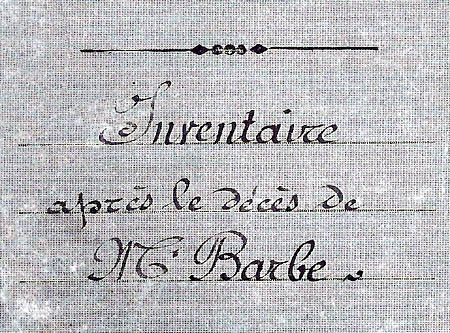 Inventaire
après le décès de
Mr Barbe